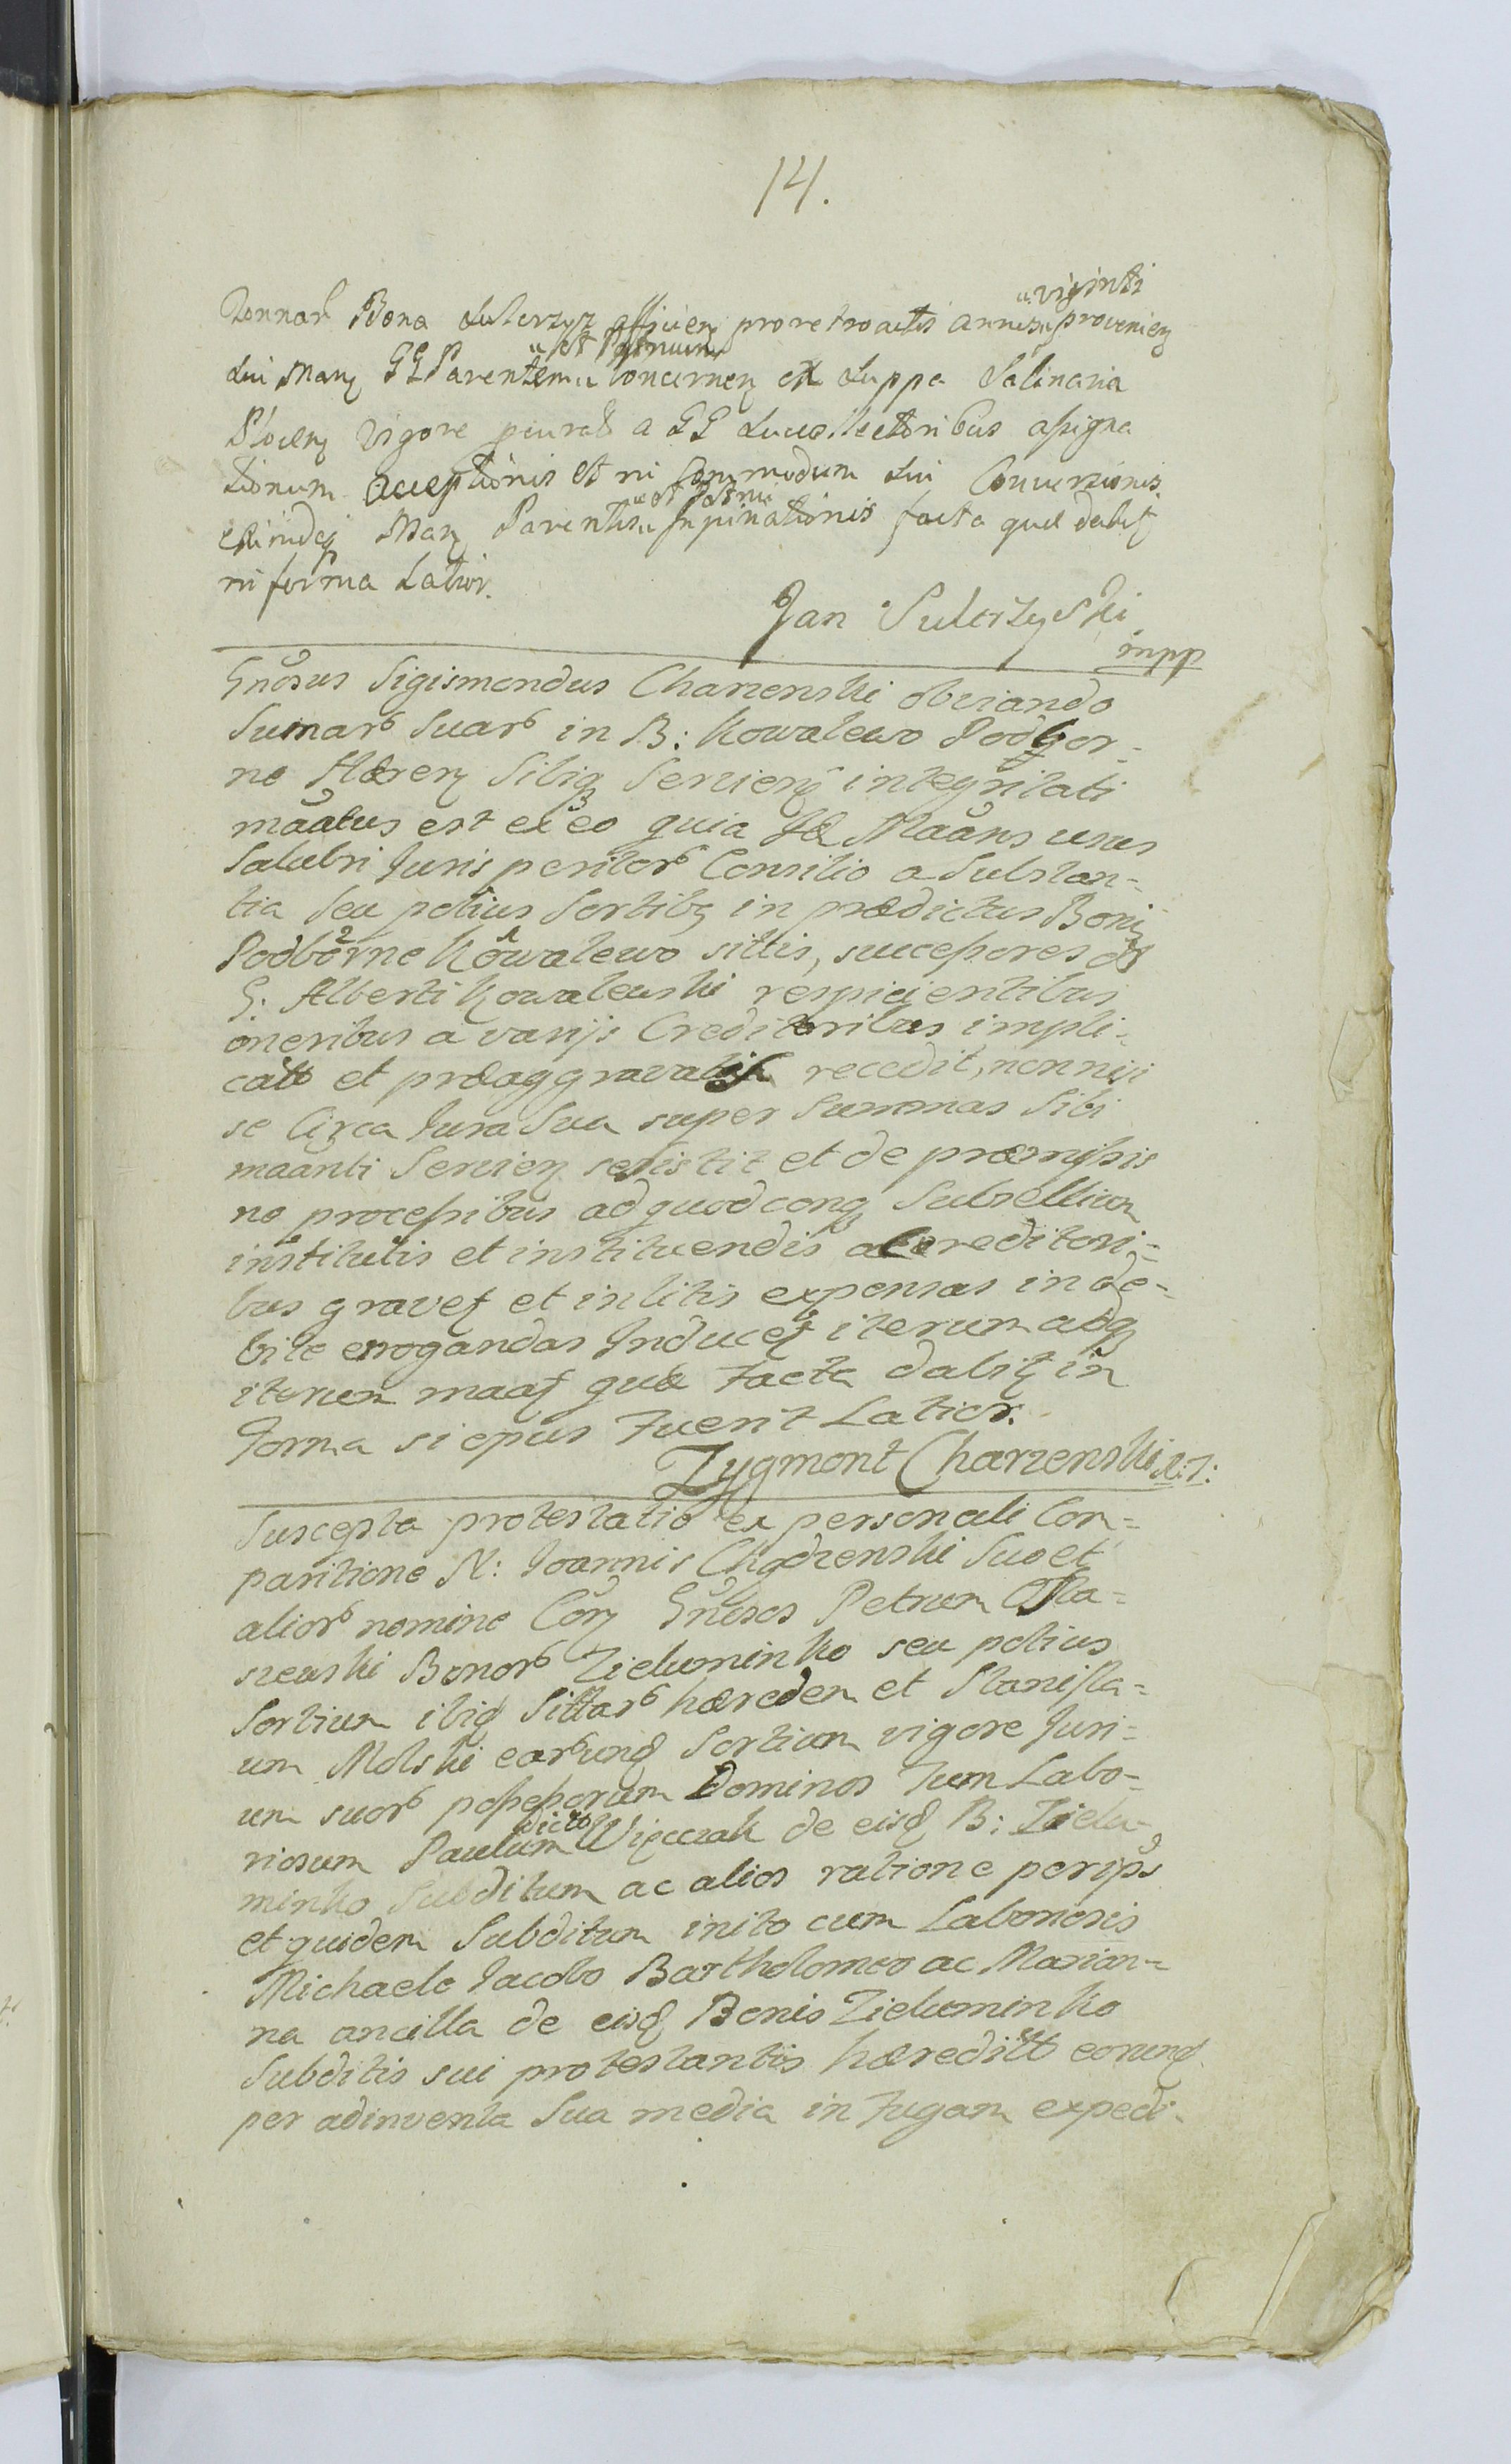 14.
viginti
Bona Sulerzyz afficien pro retroactis annis provenien
et Patruum
Sui Man GG Parentem concernen ex Suppa Salinaria
Plocen vigore a GG Succollectoribus assigna
tionum acceptionis et in commodum sui Conversionis
et Patrui
Man Parentis facta quae dabit
in forma Latior.
Jan Sulerzyski
mpp
Gnosus Sigismondus Charzenski obviando
Sumar Suar in B: Kowalewo Podbor-
ne Haeren Sibiq Servien integritati
maatus est ex eo quia Id Maans usus
Salubri Juris peritor Consilio a Substan-
tia Seu potius Sortibq in praedictus Boni
Podborne Kowalewo sittis, successores
G: Alberti Kowalewski respicientibus
oneribus a varijs Creditoribus impli-
catt et praeaggravatis recedit, nonnisi
se Circa Jura Sua super Summas Sibi
maanti Servien et de praemissis
ne processibus ad quodconq Subsellium
institutis et instituendis a Creditori-
bus gravet et in litis expensas inde-
bite erogandas Inducet iterum atq
iterum maat quae Facta dabit in
Forma si opus Fuerit Latior.
Zygmont Charzenski
Suscepta protestatio ex personali Com-
paritione N: Joannis Chądzenski Suo et
alior nomine Con Gnosos Petrum
szewski Bonor Zieluminko seu potius
Sortium ibiq Sittar haeredem et Stanisla-
um Molski earung Sortium vigore Juri-
um suor possessorum Dominos Tum Labo-
dicto
riosum Paulum Więczak de eisd B: Zielu-
minko Subditum ac alios ratione per ips
et quidem Subditum inito cum Laboriosis
Michaele Jacobo Bartholomeo ac Marian-
na ancilla de eisd Bonis Zieluminko
Subditis sui protestantis haereditt eorund
per adinventa Sua media in Fugam expedi-